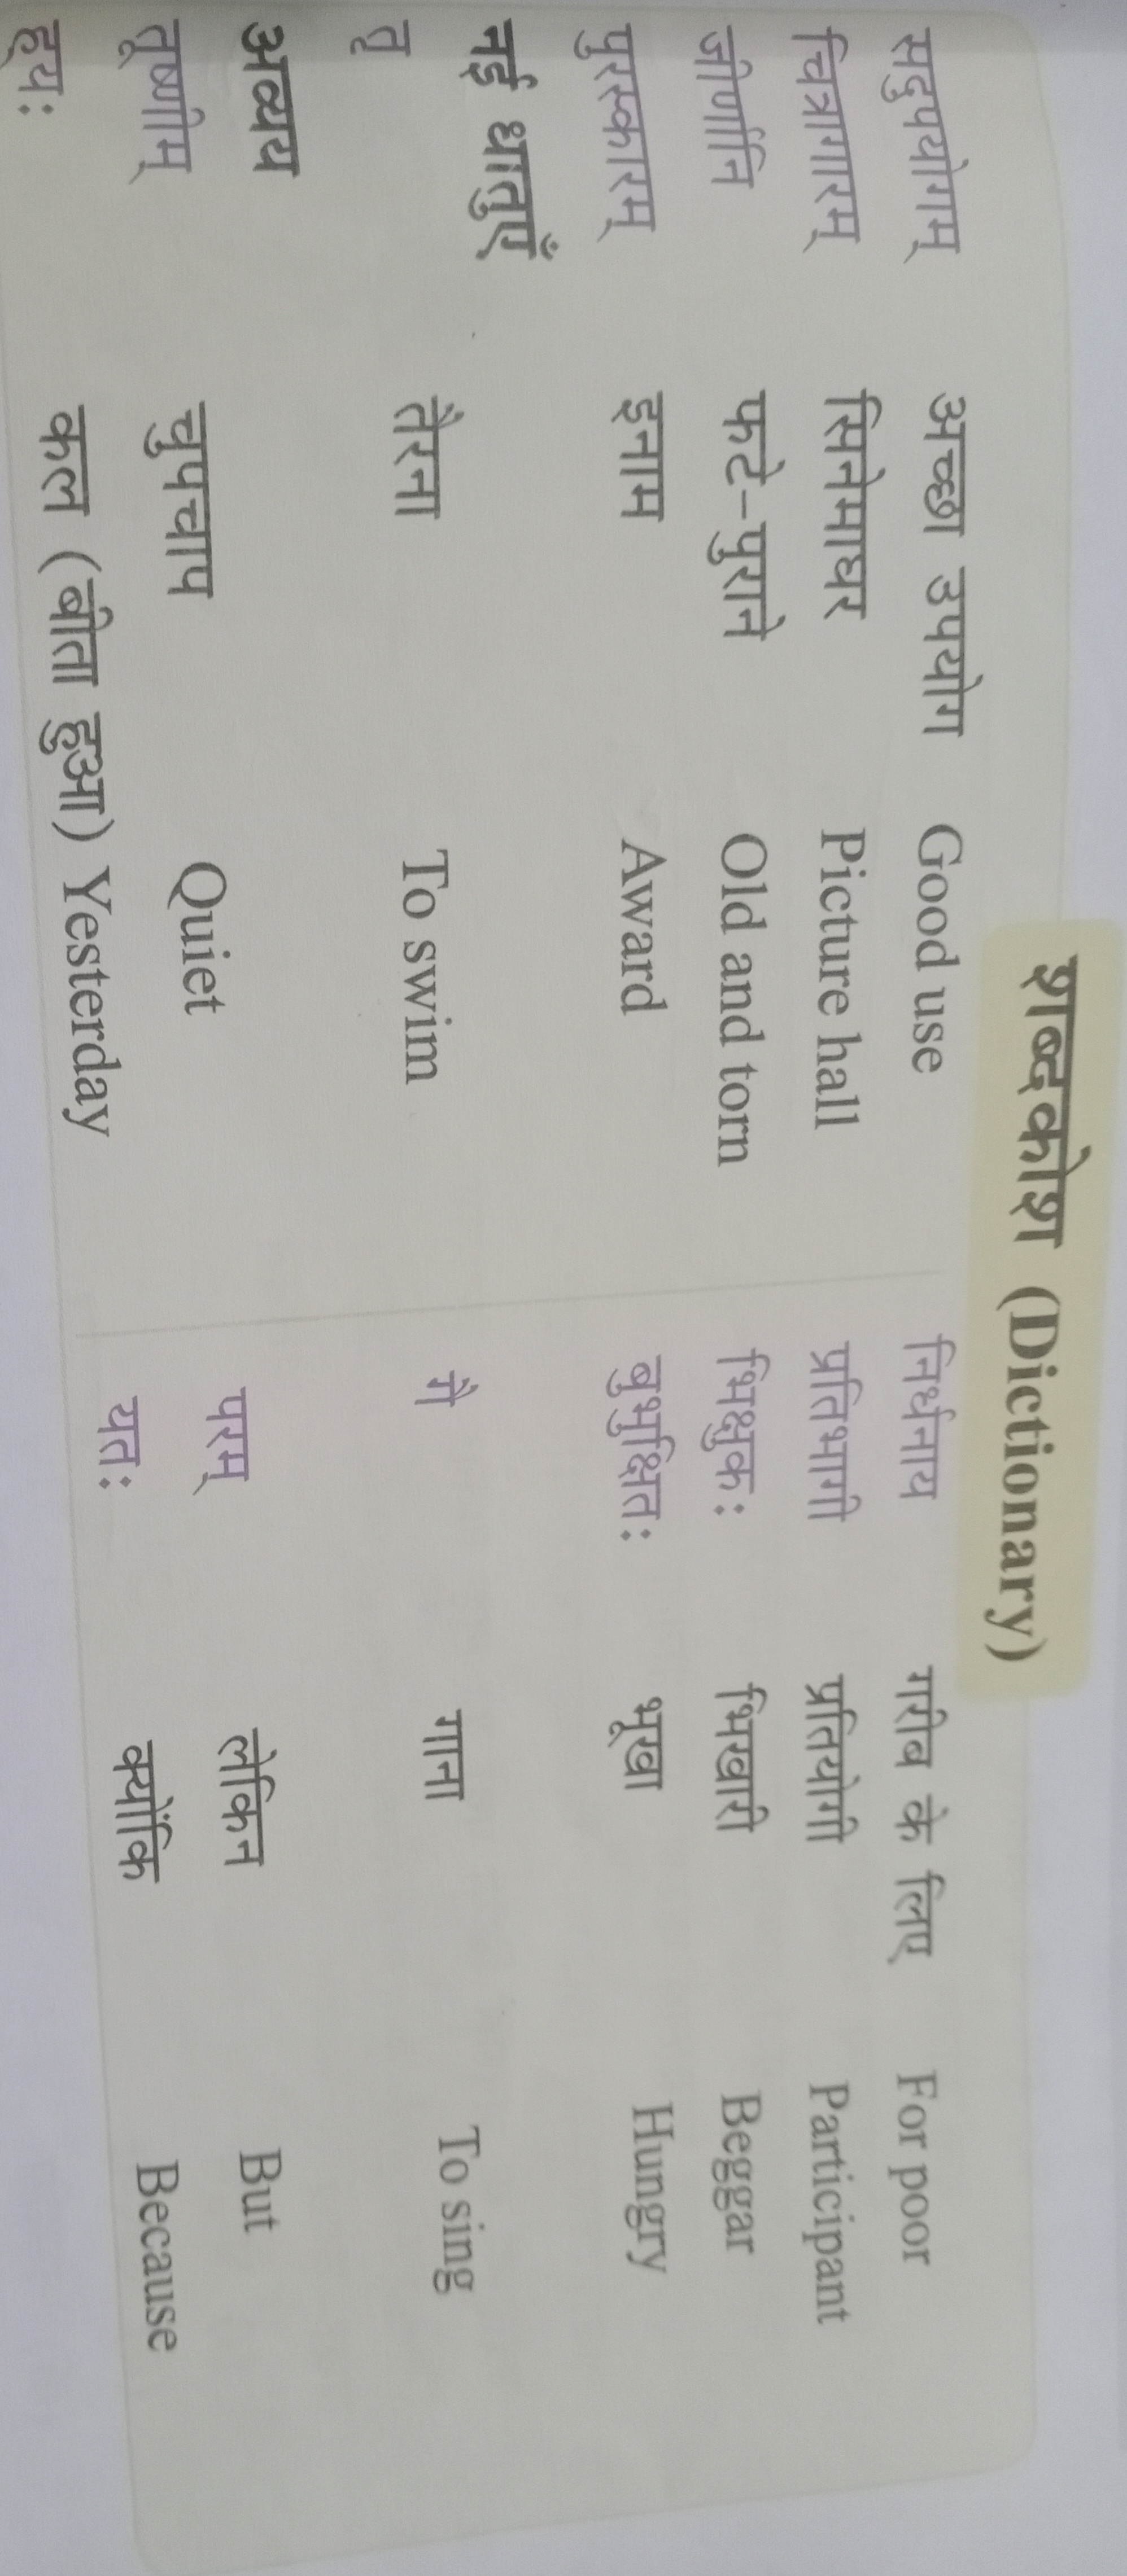 शब्दकोश (Dictionary)
सदुपयोगम् अच्छा उपयोग Good use निर्धनाय गरीब के लिए For poor
चित्रागारम् सिनेमाघर Picture hall प्रतिभागी प्रतियोगी Participant
जीर्णानि फटे-पुराने Old and torn भिक्षुकः भिखारी Beggar
पुरस्कारम् इनाम Award बुभुक्षितः भूखा Hungry
नई धातुएँ
तृ तैरना To swim गै गाना To sing
अव्यय
तूष्णीम् चुपचाप Quiet परम् लेकिन But
ह्यः कल (बीता हुआ) Yesterday यतः क्योंकि Because